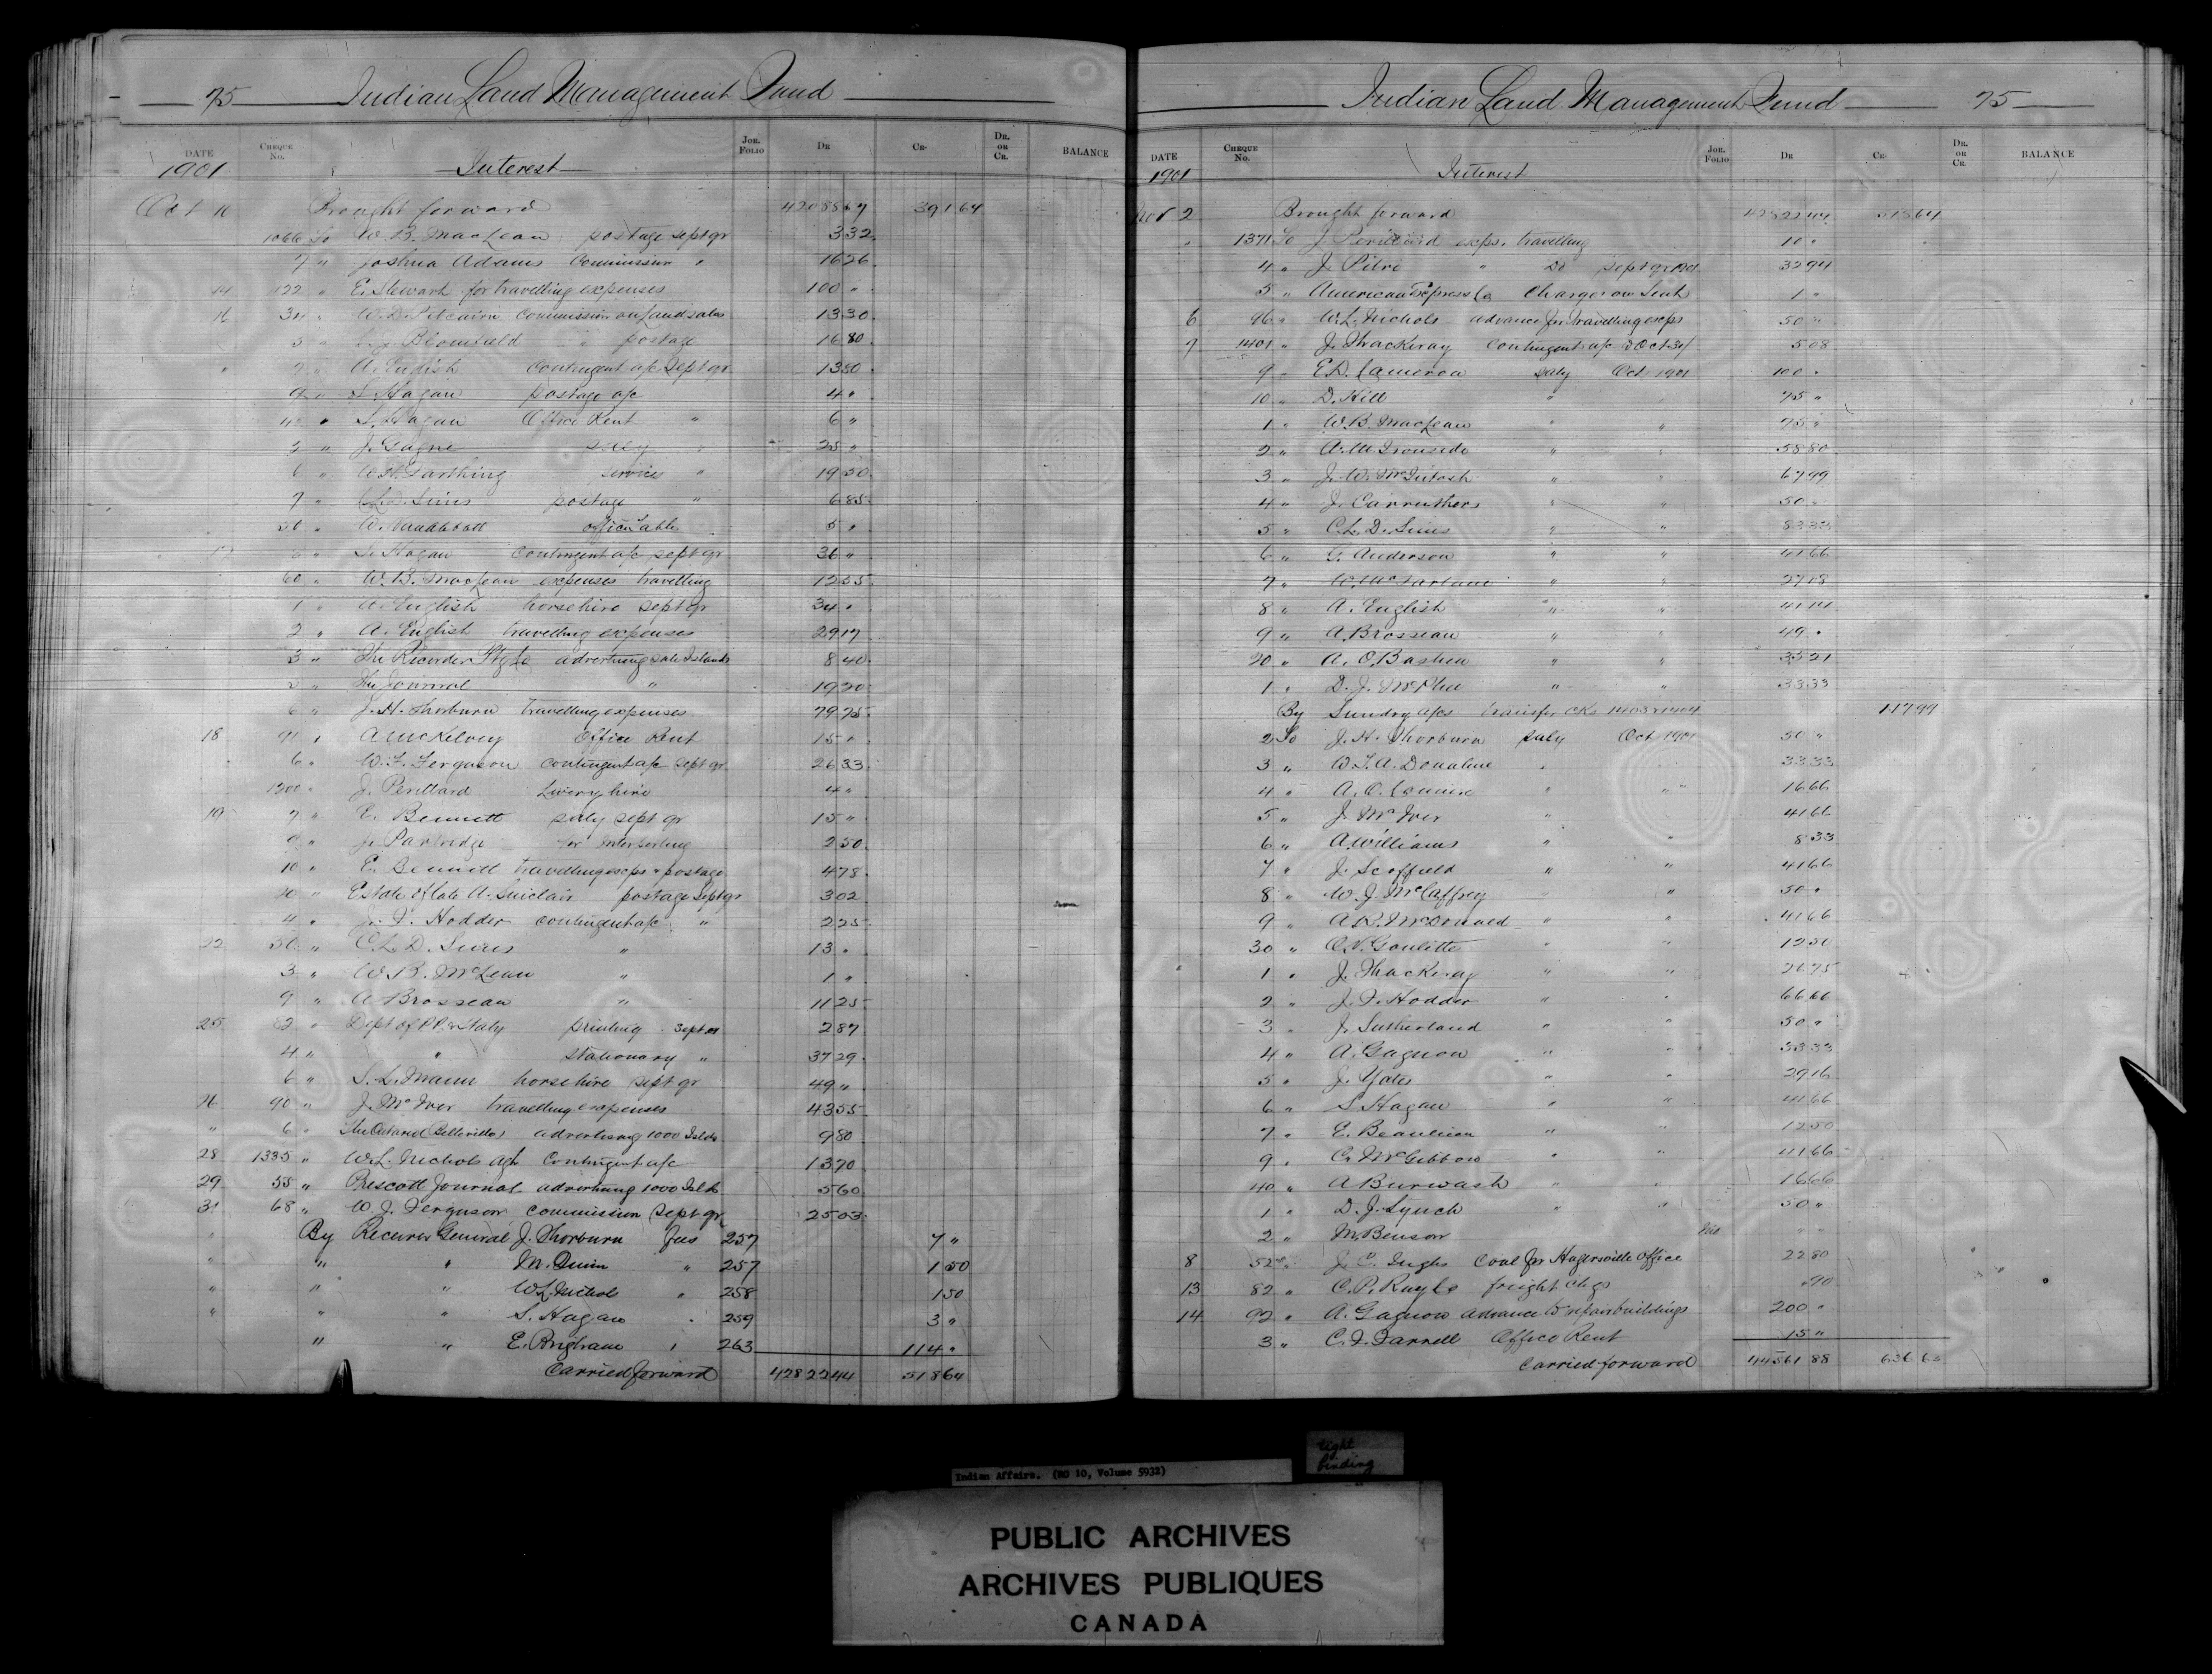 75 Indian Land Management Fund
DATE Cheque No. Jor. Folio Dr Cr. Dr. or Cr. BALANCE
1901 Interest
Oct 10 Brought forward 42088 67 391 64
1066 To W. B. MacLean postage sept qr 3 32
7 " Joshua Adams Commission " 16 26
14 122 " E. Stewart for travelling expenses 100 "
16 34 " W. D. Pitcairn Commission on Land sales 13 30
5 " Blomfield " postage 16 80
" 7 " A. English Contingent a/c Sept qr 13 80
9 " S. Hagan postage a/c 4 "
" S. Hagan Office Rent " 6 "
" J. Gagne saly 25 "
6 " Farthing services " 19 50
7 " C. L. D. Sims postage " 6 85
50 " office table 5 "
" S. Hagan contingent a/c sept qr 36 "
60 " W. B. MacLean expenses travelling 12 55
1 " A. English horse hire sept qr 34 "
2 " A. English travelling expenses 29 17
3 " The Recorder Ptg Co advertising sale Islands 8 40
" The Journal " 19 20
6 " J. H. Thorburn travelling expenses 79 75
18 91 " A McKelvey Office Rent 15 "
6 " W. J. Ferguson contingent a/c sept qr 26 33
1200 " J. Perillard Livery hire 4 "
19 7 " E. Bennett saly sept qr 15 "
9 " J. Partridge for interpreting 2 50
10 " E. Bennett travelling exps & postage 4 78
" Estate of late A. Sinclair postage Sept qr 3 02
4 " J. F. Hodder contingent a/c " 2 25
22 30 " C. L. D. Sims " 13 "
3 " W. B. McLean " 1 "
9 " A Brosseau " 11 25
25 82 " Dept of P.P. & Staty printing Sept 2 87
4 " " stationary " 37 29
6 " S. L. Mann horse hire sept qr 49 "
26 90 " J. McIver travelling expenses 43 55
" 6 " The Ontario (Belleville) advertising 1000 Islds 9 80
28 1335 " W. L. Nichols agt Contingent a/c 13 70
29 55 " Prescott Journal advertising 1000 Islds 5 60
31 68 " W. J. Ferguson commission Sept qr 25 03
" By Receiver General J. Thorburn fees 257 7 "
" " " M. Quinn " 257 1 50
" " " W. L. Nichols " 258 1 50
" " " S. Hagan " 259 3 "
" " E. Brigham " 263 114 "
Carried forward 42822 44 518 64
Indian Land Management Fund 75
DATE Cheque No. Jor. Folio Dr Cr. Dr. or Cr. BALANCE
1901 Interest
Nov 2 Brought forward 42822 44 518 64
" 1371 To J Perillard exps. travelling 10 "
4 " J. Pitre " Do sept qr 1901 32 94
5 " American Express Co Charges on 1 "
6 96 " W. L. Nichols advance for travelling exps 50 "
7 1401 " J. Thackeray Contingent a/c Oct 31 5 08
9 " E. D. Cameron saly Oct 1901 100 "
10 " D. Hill " 75 "
1 " W. B. MacLean " " 75 "
2 " A. M. Ironside " " 58 80
3 " J. W. McIntosh " " 67 99
4 " J. Carruthers " " 50 "
5 " C. L. D. Sims " " 83 33
6 " G. Anderson " " 41 66
7 " W. McFarlane " " 27 08
8 " A. English " " 41 41
9 " A. Brosseau " " 49 "
20 " A. O. Bastien " " 33 21
1 " D. J. McPhee " " 33 33
By Sundry a/cs transfer cks 1403 & 1404 117 99
2 To J. H. Thorburn saly Oct 1901 50 "
3 " W. J. A. Donahue " 33 33
4 " A. O. " " 16 66
5 " J. McIver " 41 66
6 " A. Williams " 8 33
7 " J. Scoffield " " 41 66
8 " W. J. McCaffrey " " 50 "
9 " A. R. McDonald " " 41 66
30 " O. V. Goulitte " " 12 50
" 1 " J. Thackeray " " 26 75
2 " J. F. Hodder " " 66 66
3 " J. Sutherland " " 50 "
4 " A. Gagnon " " 33 33
5 " J. Yates " " 29 16
6 " S Hagan " " 41 66
7 " E. Beaulieu " " 12 50
9 " C. McGibbon " " 41 66
40 " A Burwash " " 16 66
1 " D. J. Lynch " " 50 "
2 " M. Benson " "
8 52 " J. C. Ingles Coal for Hagersville Office 22 80
13 82 " C. P. Ry Co freight chgs 90
14 92 " A. Gagnon advance to repair buildings 200 "
3 " C. F. Farrell Office Rent 15 "
Carried forward 44561 88 636 63
tight binding
Indian Affairs. (RG 10, Volume 5932)
PUBLIC ARCHIVES
ARCHIVES PUBLIQUES
CANADA